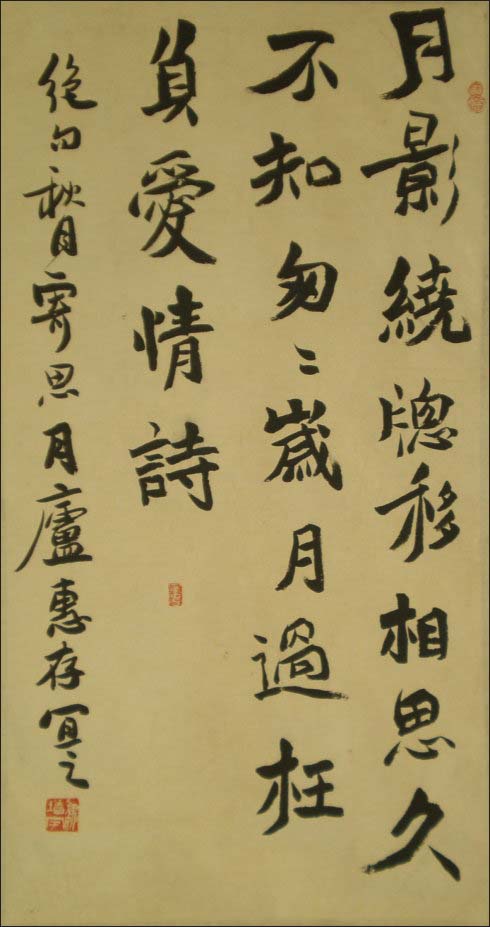 月影繞牕移相思久
不知匆〻歲月過枉
負愛情詩
絕句秋月寄思月廬惠存冝之